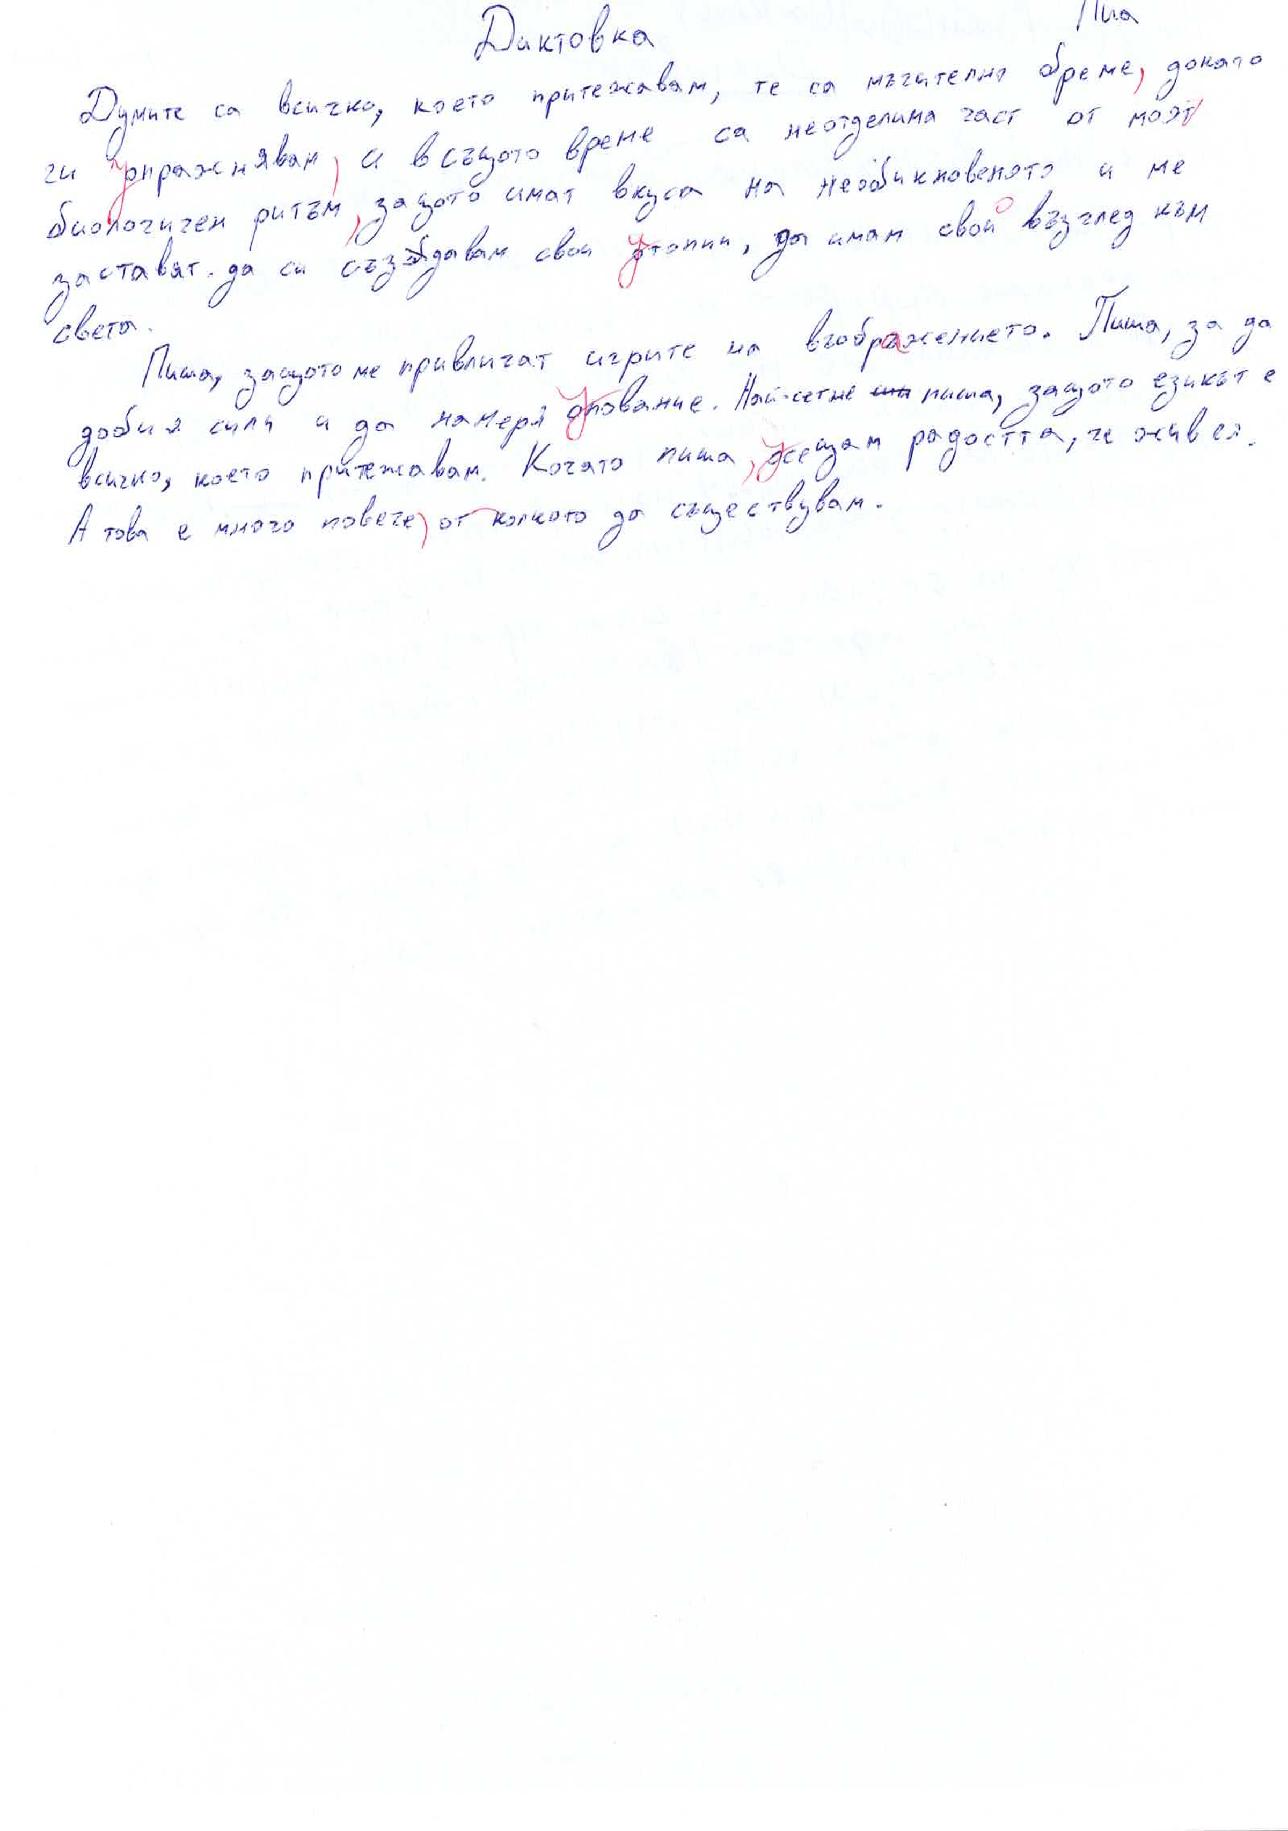 Пиа
Диктовка
Думите са всичко, което притежавам, те са мъчително бреме, докато
ги упражнявам, а в същото време са неотделима част от моят
биологичен ритъм, защото имат вкуса на необикновеното и ме
заставят да си създавам свои утопии, да имам свой възглед към
света.
Пиша, защото ме привличат игрите на въображението. Пиша, за да
добия сили и да намеря упование. Най-сетне пиша, защото езикът е
всичко, което притежавам. Когато пиша, усещам радостта, че живея.
А това е много повече, от колкото да съществувам.